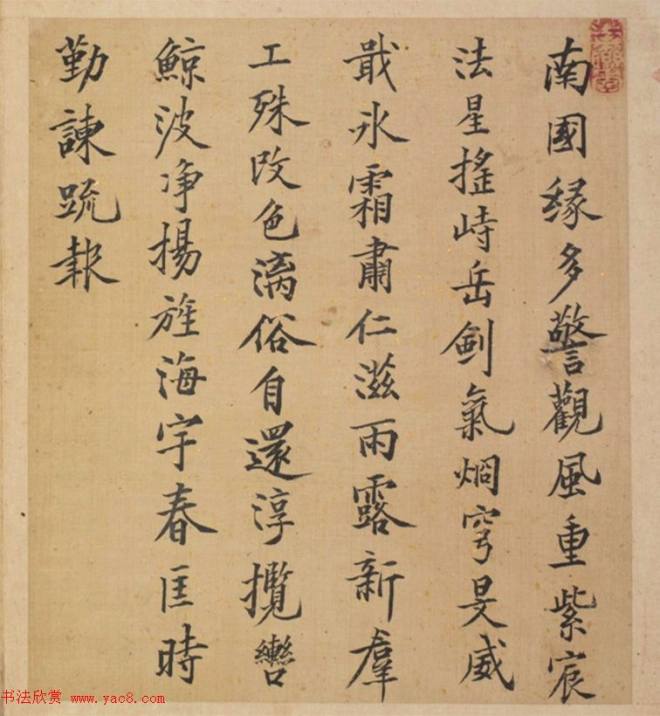 南國緣多警觀風重紫宸
法星搖峙岳劍氣烱穹旻威
戢氷霜肅仁滋雨露新羣
工殊改色漓俗自還淳攬轡
鯨波净揚旌海宇春匡時
勤諫䟽報
书法欣赏 www.yac8.com